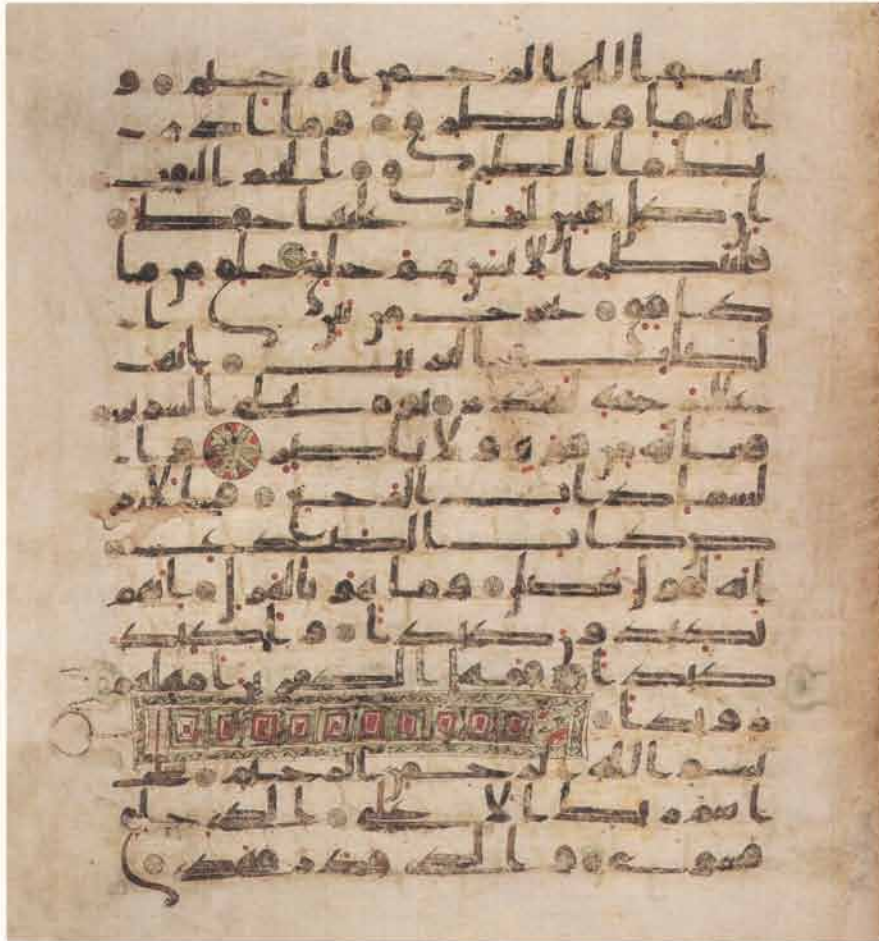 بسم الله الرحمن الرحيم و
السما والطرق وما ادر
يك ما الطرق النجم الثقب
ان كل نفس لما عليها حفظ
فلينظر الانسن مم خلق خلق من ما
دافق يخرج من بين ا
لصلب والترايب انه
على رجعه لقدر يوم تبلى السراير
فما له من قوة ولا ناصر وا
لسما ذات الرجع والار
ض ذات الصدع
انه لقول فصل وما هو بالهزل انهم
يكيدون كيدا واكيد
كيدا فمهل الكفرين امهلهم
رويدا
بسم الله الرحمن الرحيم سبح
اسم ربك الاعلى الذي خلق
فسوى والذي قدر فهد